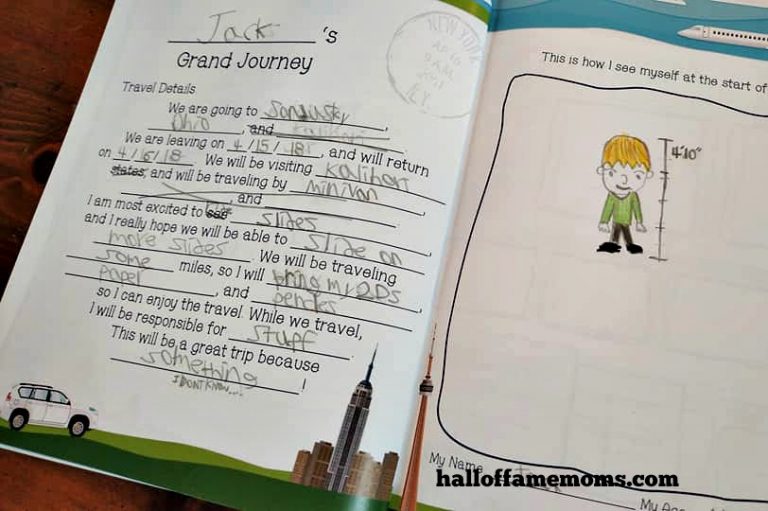 Jack 's
Grand Journey
Travel Details
We are going to Sandusky,
Ohio, and
We are leaving on 4/15/18, and will return
on 4/16/18. We will be visiting Kalihari
states, and will be traveling by minivan,
, and
I am most excited to see slides
and I really hope we will be able to slide on
more slides. We will be traveling
some miles, so I will bring my 2DS,
paper, and pencler
so I can enjoy the travel. While we travel,
I will be responsible for stuff.
This will be a great trip because
something!
I DONT KNOW....
NEW YORK
N.Y.
This is how I see myself at the start of
4'10"
My Name
My A
halloffamemoms.com